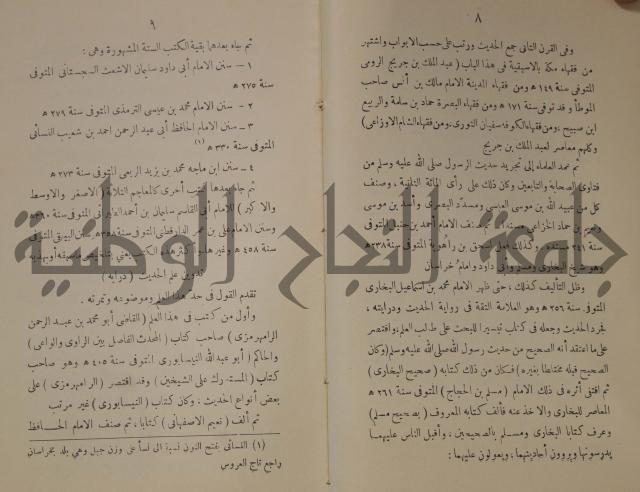 ٨
وفى القرن الثانى جمع الحديث ورتب على حسب الابواب واشتهر
من فقهاء مكة بالاسبقية فى هذا الباب ( عبد الملك بن جريج الرومى
المتوفى سنة ١٤٩ هـ ومن فقهاء المدينة الامام مالك بن أنس صاحب
الموطأ وقد توفى سنة ١٧١ هـ ومن فقهاء البصرة حماد بن سلمة والربيع
ابن صبيح ، ومن فقهاء الكوفه سفيان الثورى ، ومن فقهاء الشام الاوزاعى )
وكلهم معاصر لعبد الملك بن جريج
ثم عمد العلماء إلى تجريد حديث الرسول صلى الله عليه وسلم من
فتاوى الصحابة والتابعين وكان ذلك على رأى المائة الثانية ، وصنف
كل من عبيد الله بن موسى العبسى ومسدد البصرى وأسد بن موسى
ونعيم بن حماد الخزاعى مسندا ثم صنف الامام أحمد بن حنبل المتوفى
سنة ٢٤١ مسنده وكذلك فعل اسحق بن راهوية المتوفى سنة ٢٣٨ هـ
وهو شيخ البخارى ومسلم وأبى داود وامام خراسان
وظل التأليف كذلك ، حتى ظهر الامام محمد بن اسماعيل البخارى
المتوفى سنة ٢٥٦ هـ وهو العلامة الثقة فى رواية الحديث ودرايته ،
فجرد الحديث وجعله فى كتاب تيسيرا للبحث على طالب العلم ، واقتصر
على ما اعتقد أنه الصحيح من حديث رسول الله صلى الله عليه وسلم ( وكان
الصحيح قبله مختلطا بغيره ) فكان من ذلك كتابه ( صحيح البخارى )
ثم اقتفى أثره فى ذلك الامام ( مسلم بن الحجاج ) المتوفى سنة ٢٦١ هـ
المعاصر للبخارى والاخذ عنه فألف كتابه المعروف ( بصحيح مسلم )
وعرف كتابا البخارى ومسلم بالصحيحين ، وأقبل الناس عليهما
يدرسونها ويروون أحاديثهما ، ويعولون عليهما ؛
٩
ثم جاء بعدها بقية الكتب الستة المشهورة وهى :
١ – سنن الامام أبى داود سليمان الاشعث السجستانى المتوفى
سنة ٢٧٥ هـ
٢ – سنن الامام محمد بن عيسى الترمذى المتوفى سنة ٢٧٩ هـ
٣ – سنن الامام الحافظ أبى عبد الرحمن احمد بن شعيب النسائى
المتوفى سنة ٣٣٠ هـ (١)
٤ – سنن ابن ماجه محمد بن يزيد الربعى المتوفى سنة ٢٧٣ هـ
ثم جاء بعدها كتب أخرى كالمعاجم الثلاثة ( الاصغر والاوسط
والاكبر ) للامام أبى القاسم سليمان بن أحمد الطبرانى المتوفى سنة ٣٦٠ هـ
وسنن الامام على بن عمر الدارقطنى المتوفى سنة ٣٨٥ هـ وسنن البيهقى المتوفى
سنة ٤٥٨ هـ وغيرها وأكثر هذه الكتب
تدوين علم الحديث ( دراية )
تقدم القول فى حد هذا العلم وموضوعه وثمرته .
وأول من كتب فى هذا العلم ( القاضى أبو محمد بن عبد الرحمن
الرامهرمزى ) صاحب كتاب ( المحدث الفاصل بين الراوى والواعى )
والحاكم ( أبو عبد الله النيسابورى المتوفى سنة ٤٠٥ هـ وهو صاحب
كتاب ( المستدرك على الشيخين ) وقد اقتصر ( الرامهرمزى ) على
بعض أنواع الحديث ، وكان كتاب ( النيسابورى ) غير مرتب
ثم ألف ( نعيم الاصفهانى ) كتابا ، ثم صنف الامام الحافظ
(١) النسائى بفتح النون نسبة الى نسأ على وزن جبل وهى بلد بخراسان
راجع تاج العروس
جامعة النجاح الوطنية